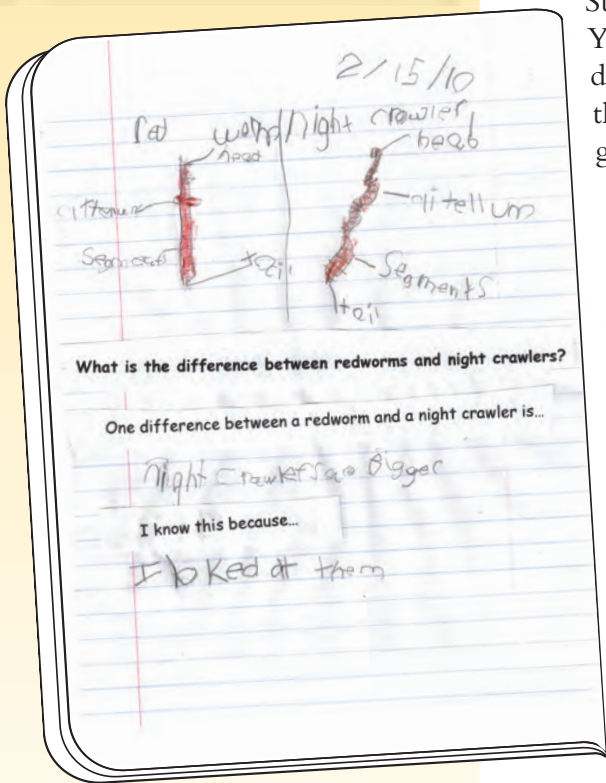 2/15/10
red worm/night crawler
head heab
clitellum
segments tail Segments
tail
What is the difference between redworms and night crawlers?
One difference between a redworm and a night crawler is...
night crawlers are Bigger
I know this because...
I loked at them
St
Y
d
th
g